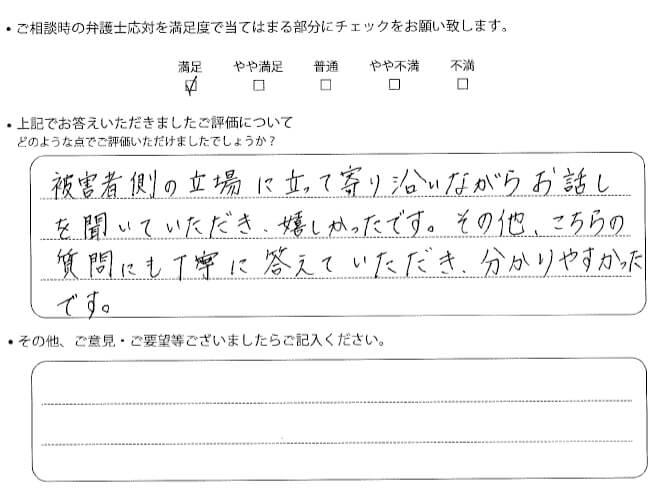 • ご相談時の弁護士応対を満足度で当てはまる部分にチェックをお願い致します。
満足 やや満足 普通 やや不満 不満
☑ □ □ □ □
• 上記でお答えいただきましたご評価について
どのような点でご評価いただけましたでしょうか？
被害者側の立場に立って寄り沿いながらお話し
を聞いていただき、嬉しかったです。その他、こちらの
質問にも丁寧に答えていただき、分かりやすかった
です。
• その他、ご意見・ご要望等ございましたらご記入ください。